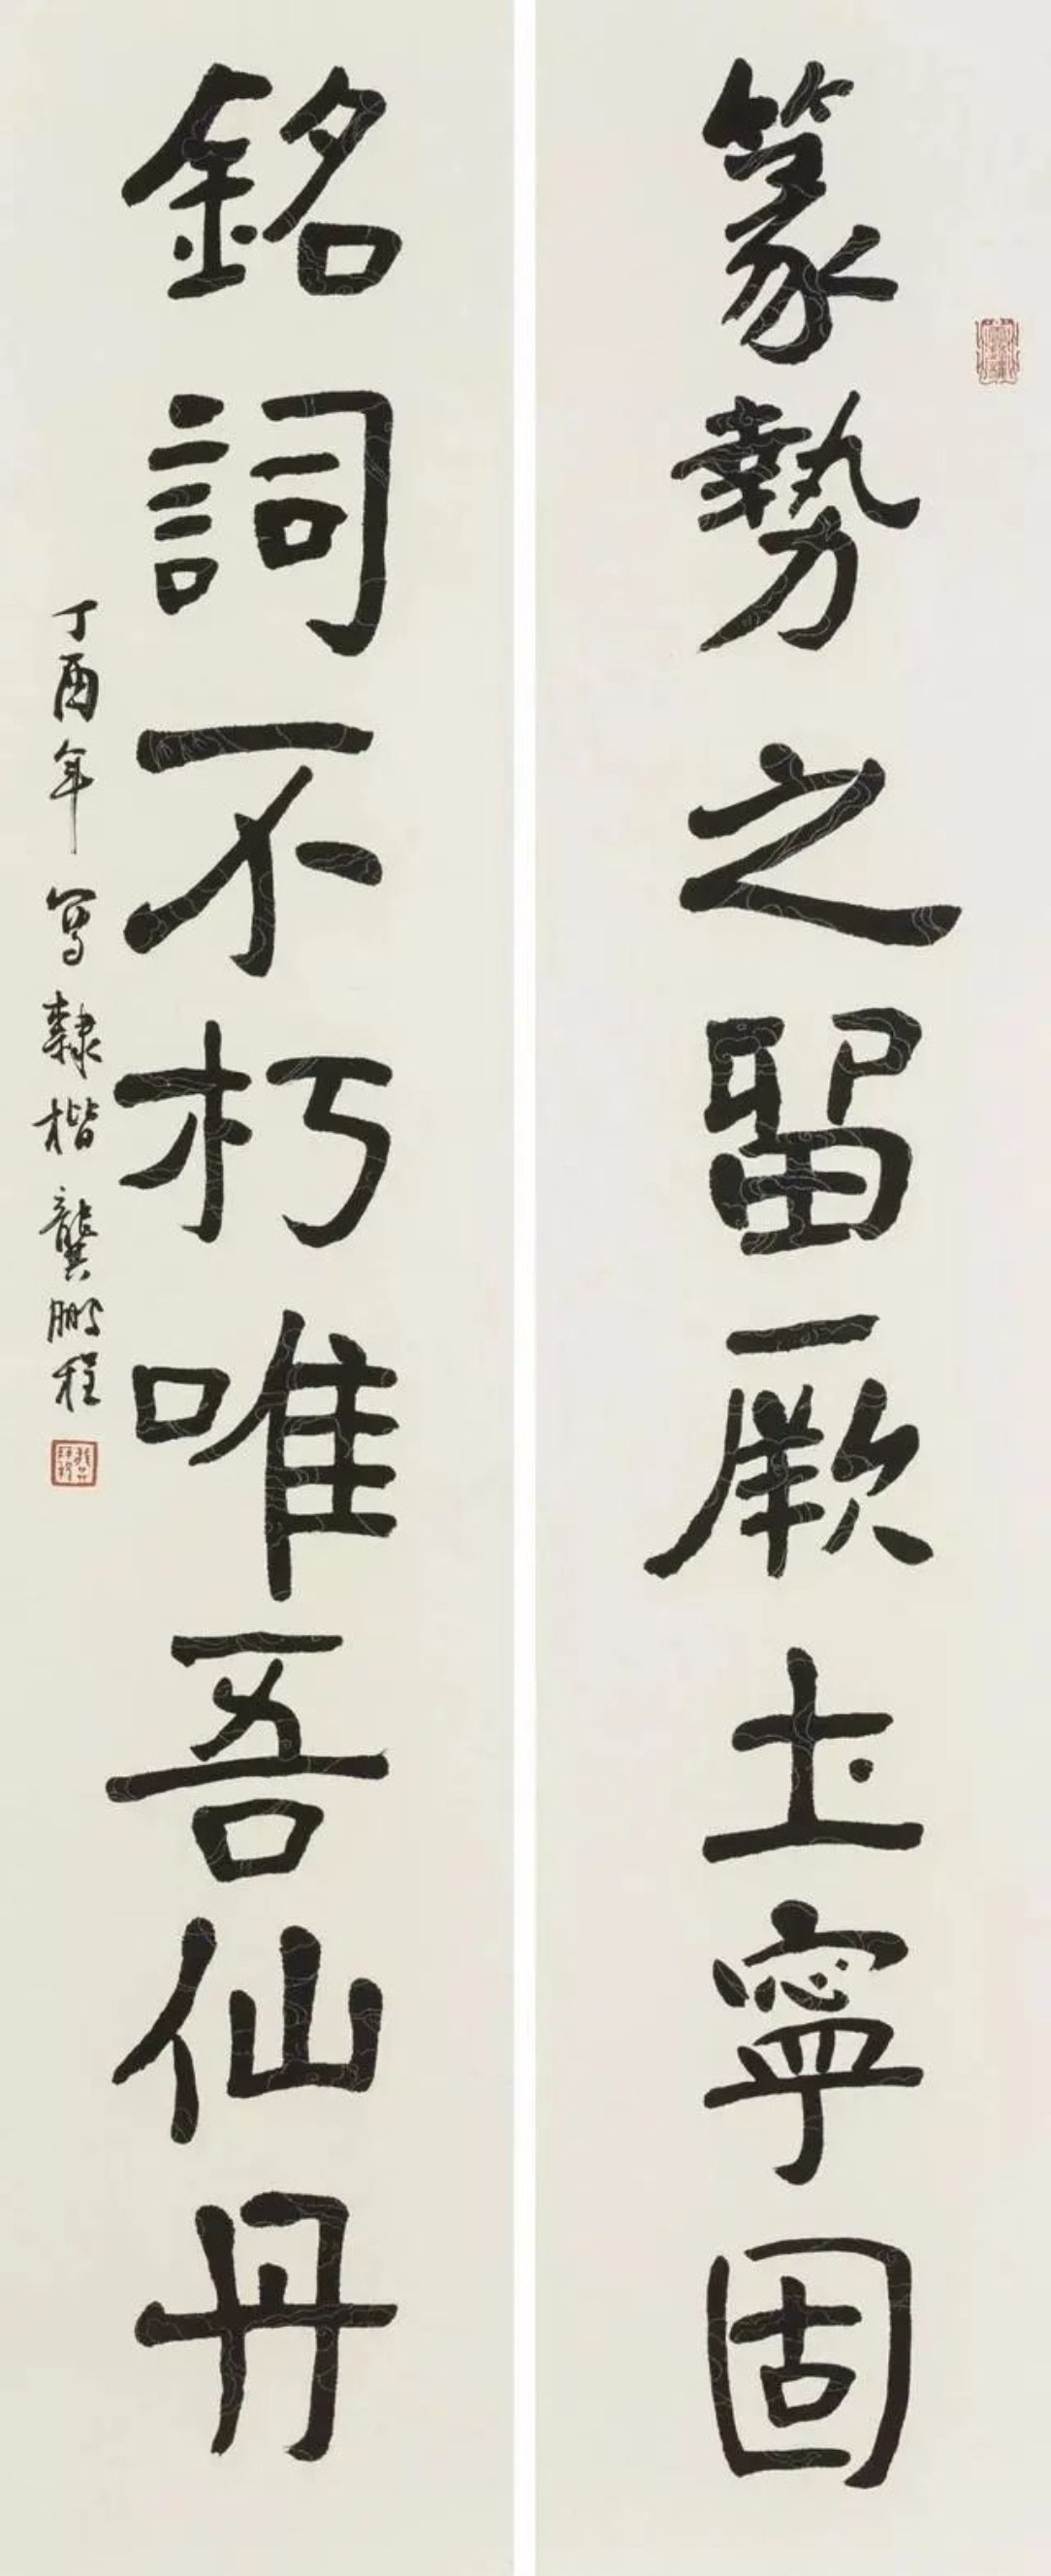 篆勢之留厥土寧固
銘詞不朽唯吾仙丹
丁酉年寫隸楷龔鵬程